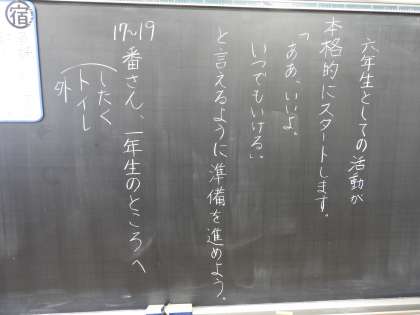 六年生としての活動が
本格的にスタートします。
「ああ、いいよ。
いつでもいける」
と言えるように準備を進めよう。
17〜19
番さん、一年生のところへ
したく
トイレ
外
宿